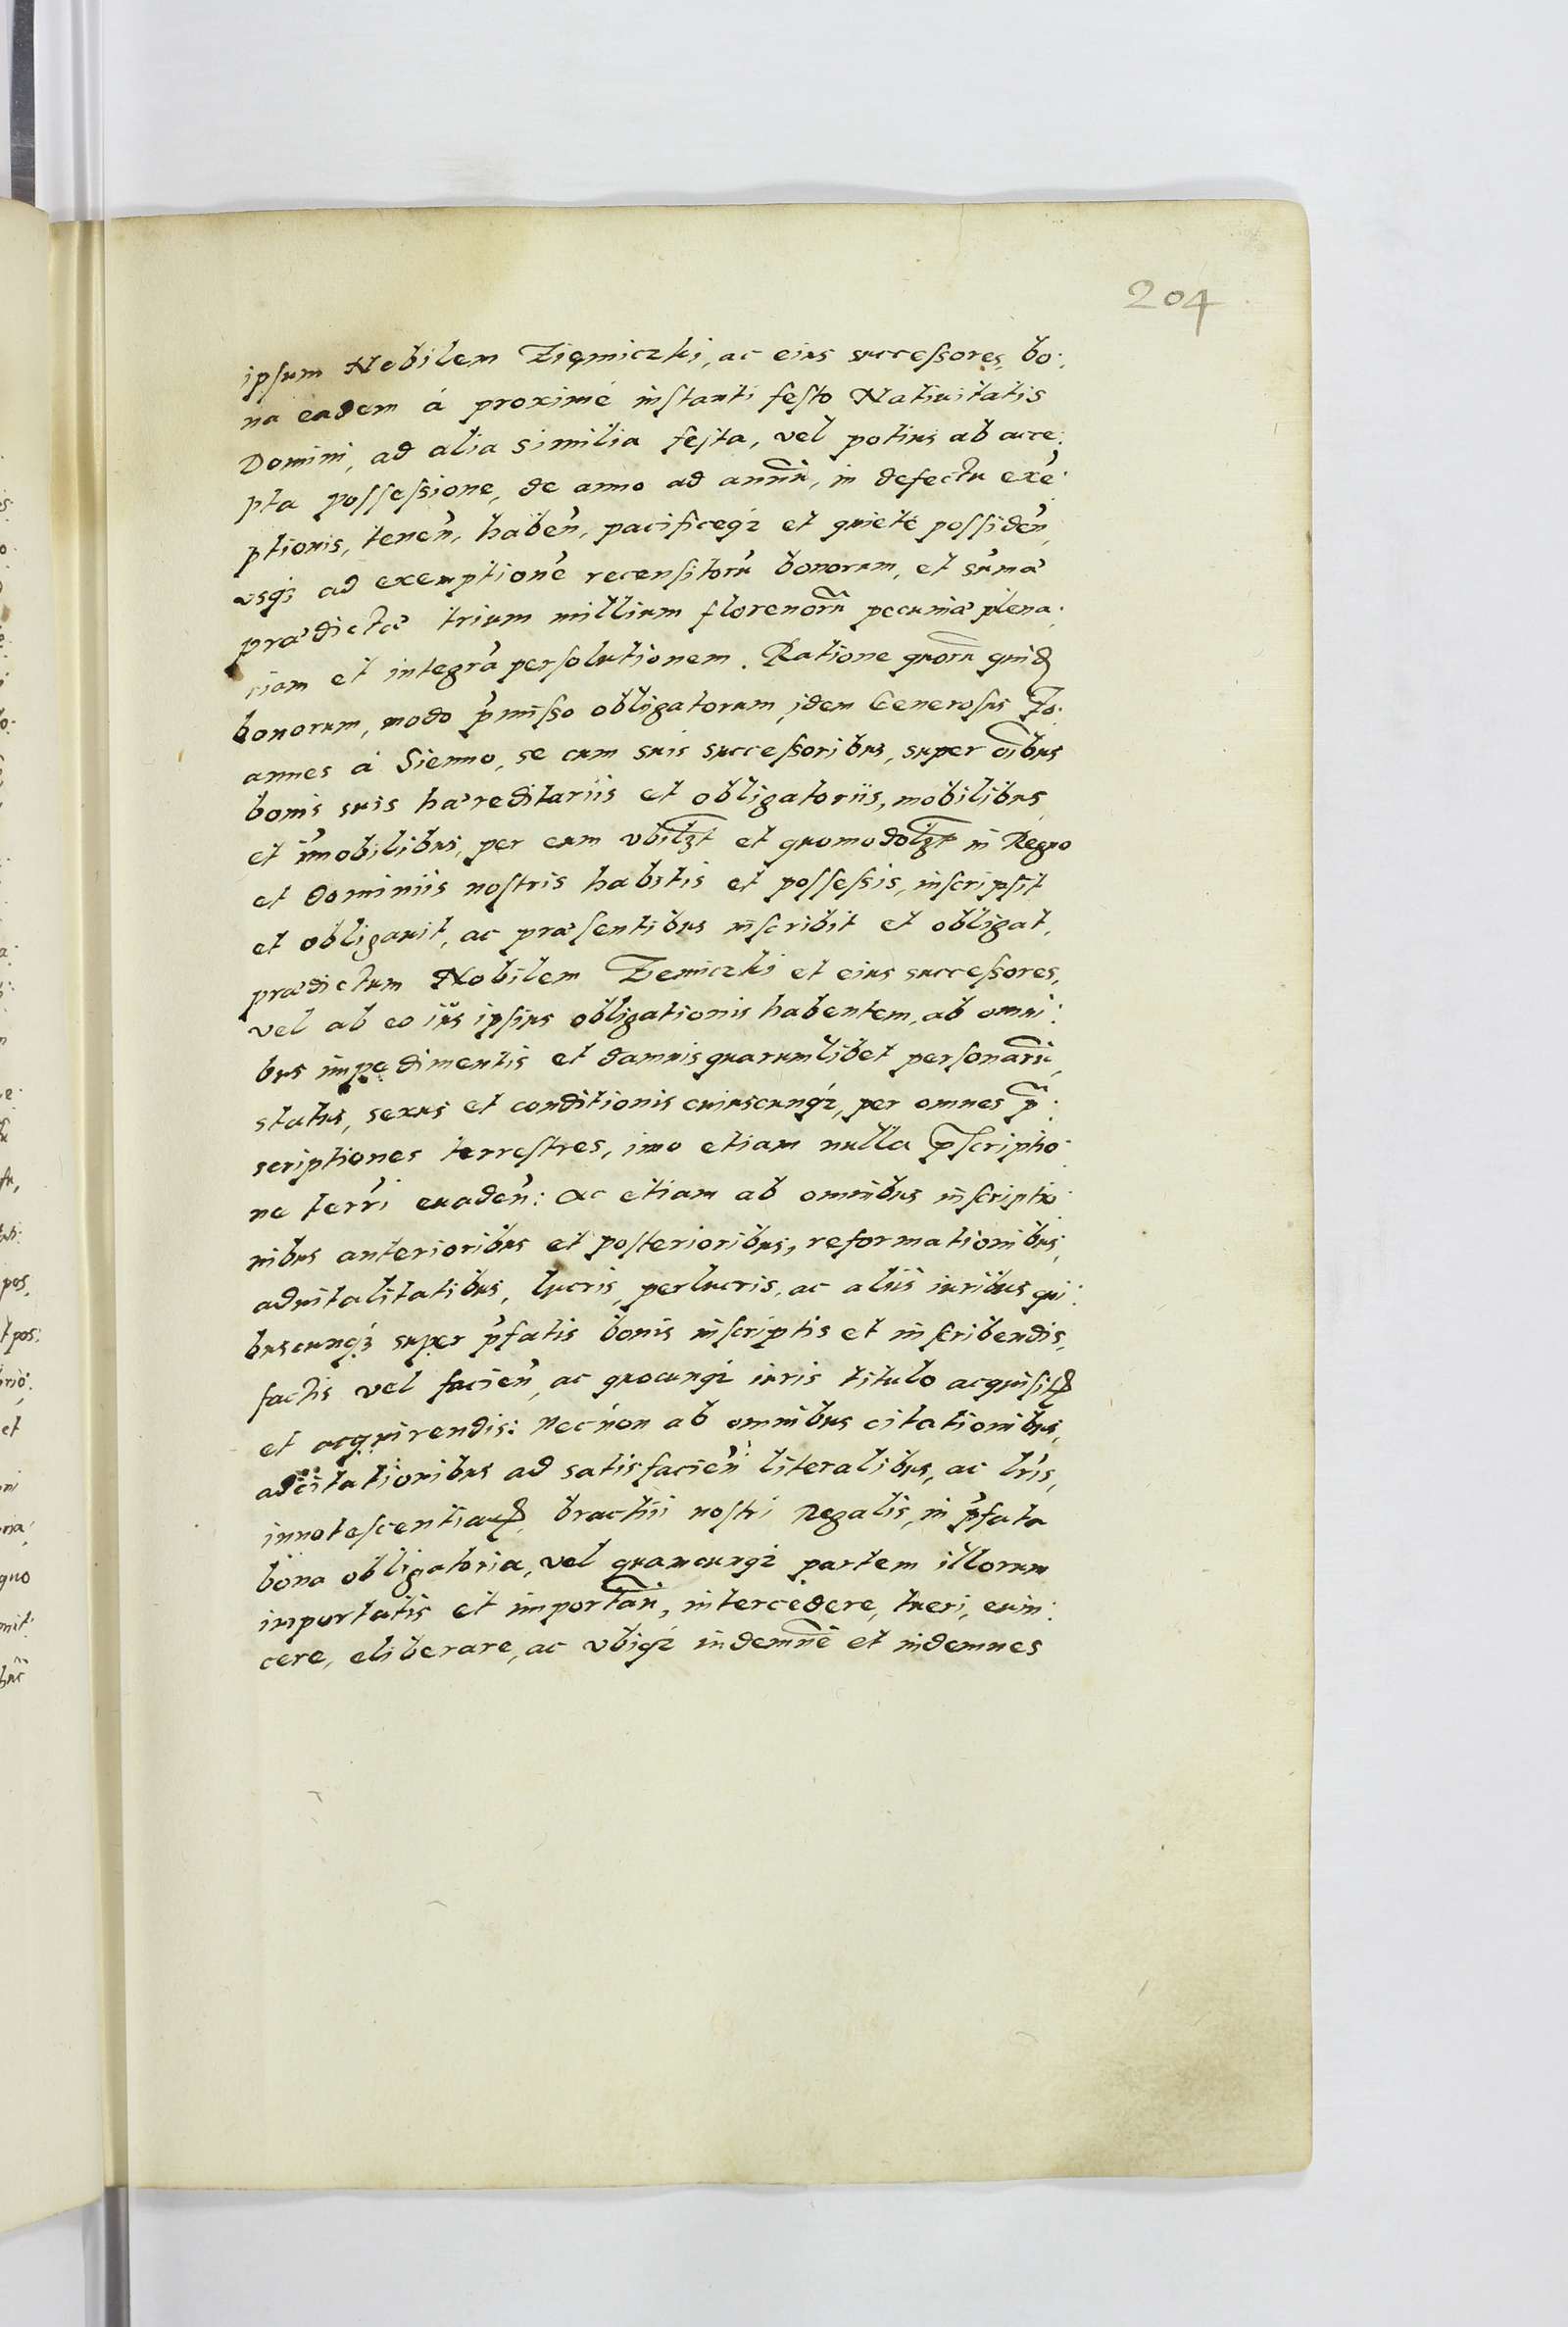 204
ipsum Nobilem Ziemiczki, ac eius successores, bo:
na eadem à proximè instanti festo Natiuitatis
Domini, ad alia similia festa, vel potius ab acce:
pta possessione, de anno ad annũ, in defectu exē:
ptionis, tenen̄, haben̄, pacificeqʒ et quietè possiden̄,
vsqʒ ad exemptionē recensitorũ bonorum, et sūmæ
prædictæ trium millium florenorũ pecuniæ plena:
riam et integrā persolutionem. Ratione quorũ quidꝫ
bonorum, modo p̄misso obligatorum, idem Generosus Jo:
annes à Sienno, se cum suis successoribus, super oı̃bus
bonis suis hæreditariis et obligatoriis, mobilibus
et im̄obilibus, per eum vbilꝫt et quomodolꝫt in Regno
et dominiis nostris habitis et possessis, inscripsit
et obligauit, ac præsentibus inscribit et obligat,
prædictum Nobilem Zemiczki et eius successores,
vel ab eo ius ipsius obligationis habentem, ab omni:
bus impedimentis et damnis quarumlibet personarũ,
status, sexus et conditionis cuiuscunqʒ, per omnes p̃:
scriptiones terrestres, imo etiam nulla p̃scriptio:
ne terr̄i euaden̄: ac etiam ab omnibus inscriptio:
nibus anterioribus et posterioribus, reformationibus,
aduitalitatibus, lucris, perlucris, ac aliis iuribus qui:
buscunqʒ super p̄fatis bonis inscriptis et inscribendis,
factis vel facien̄, ac quocunqʒ iuris titulo acquisitꝭ
et acquirendis: nec non ab omnibus citationibus,
adcitationibus ad satisfacien̄ literalibus, ac lr̄is,
innotescentiarꝭ, brachii nostri Regalis, in p̄fata
bona obligatoria, vel quamcunqʒ partem illorum
importatis et importañ, intercedere, tueri, euin:
cere, eliberare, ac vbiqʒ indemnẽ et indemnes